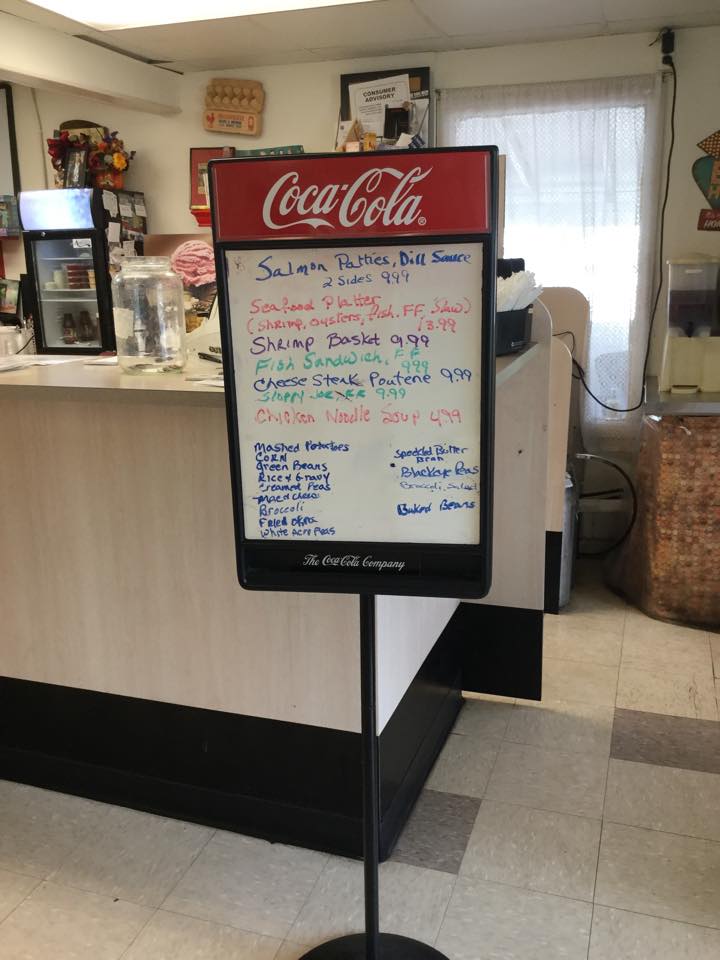 CONSUMER
ADVISORY
Coca-Cola
Salmon Patties, Dill Sauce
2 Sides 9.99
Seafood Platter
(Shrimp, oysters, fish, FF, Slaw)
13.99
Shrimp Basket 9.99
Fish Sandwich, FF
9.99
Cheese Steak Poutene 9.99
Sloppy Joe, FF 9.99
Chicken Noodle Soup 4.99
Mashed Potatoes
Corn
Green Beans
Rice & Gravy
Creamed Peas
Mac & Cheese
Broccoli
Fried Okra
White Acre Peas
Speckled Butter
Bean
Blackeye Peas
Broccoli Salad
Baked Beans
The Coca-Cola Company